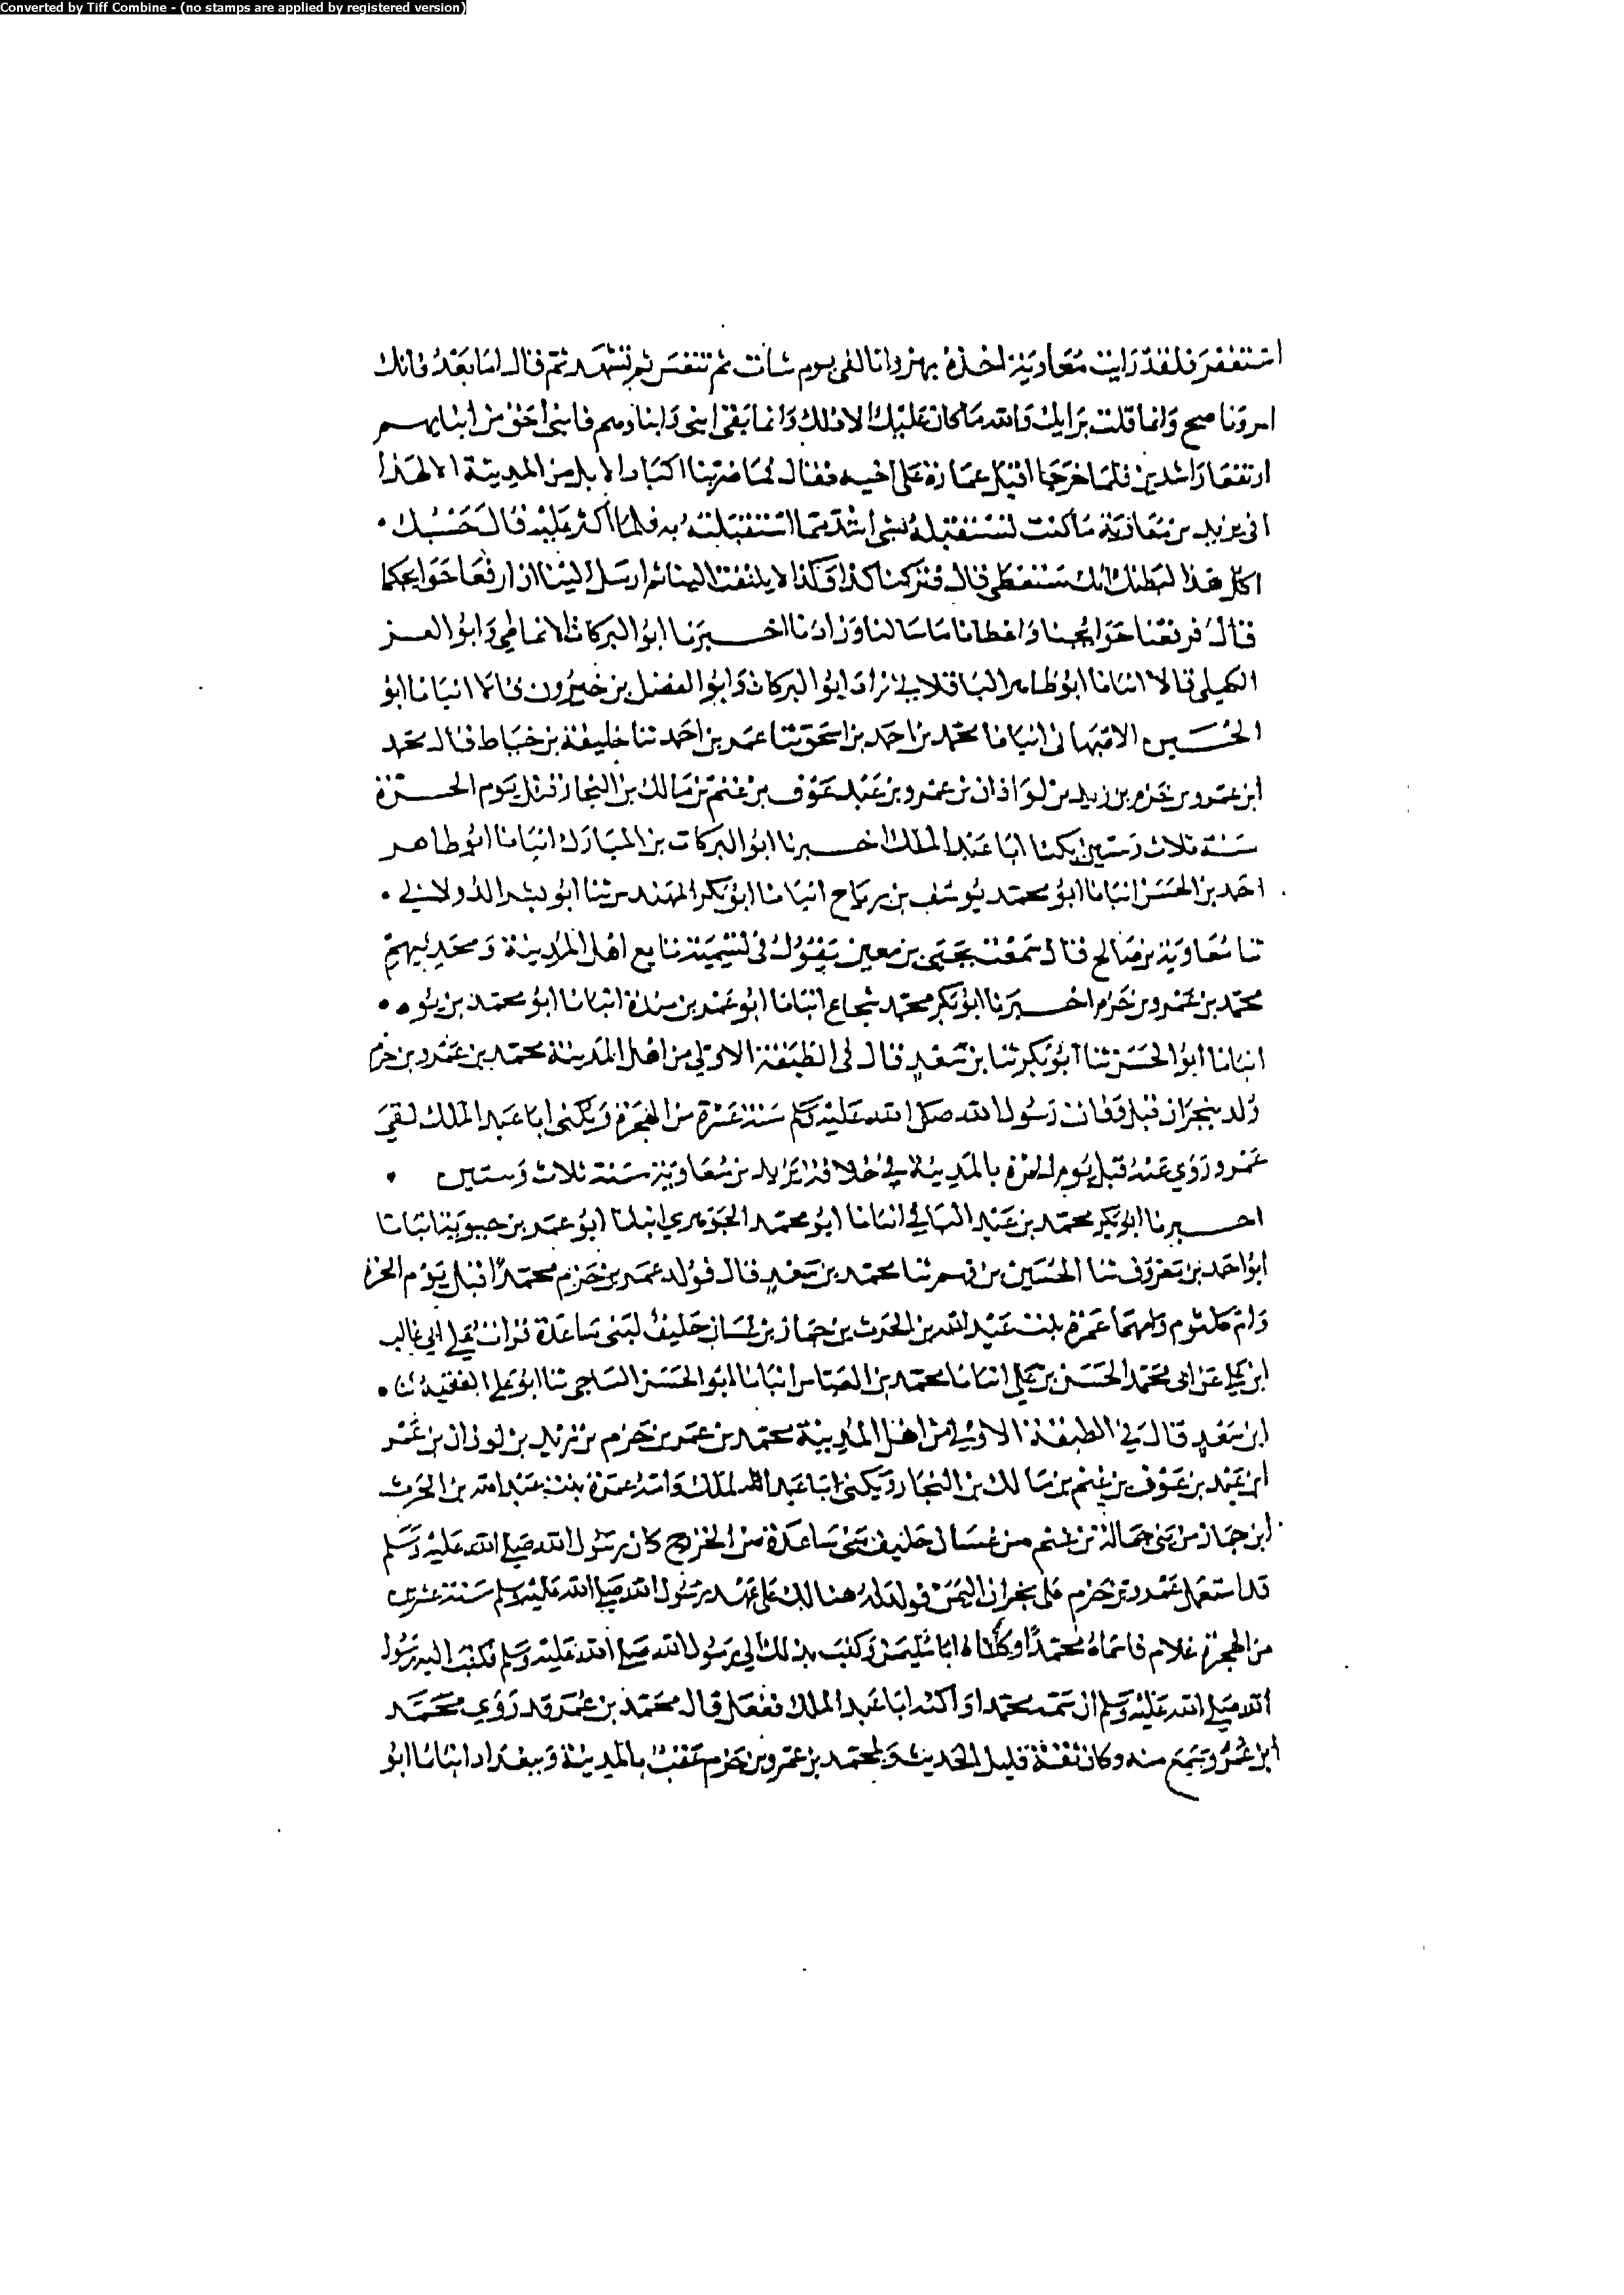 Converted by Tiff Combine - (no stamps are applied by registered version)
استغفر فلقد رايت معاوية اخذه بهر وانا لفى يوم شات ثم تنفس ثم تشهد ثم قال اما بعد فانك
امرو ناصح وانما قلت برايك والله ما كان عليك الا ذلك وانما بقى ابنى وابناوهم فابنى احق من ابنايهم
ارتفعا راشدين فلما خرجا اقبل عمارة على اخيه فقال لما ضربنا اكباد الابل من المدينة الا لهذا
انى يزيد بن معاوية ما كنت لتستقبله بشى اشد مما استقبلته به فلما اكثر عليه قال حسبك
اكل هذا لبطنك انك ستعطى قال فتركنا كذا وكذا لا يلتفت الينا ثم ارسل الينا ان ارفعا حوايجكما
قال فرفعنا حوايجنا واعطانا ما سالنا وزادنا اخبرنا ابو البركات الانماطي وابو العز
الكيلى قالا انبانا ابو طاهر الباقلاني زاد ابو البركات وابو الفضل بن خيرون قالا انبانا ابو
الحسين الاصبهانى انبانا محمد بن احمد بن اسحق ثنا عمر بن احمد ثنا خليفة بن خياط قال محمد
ابن عمرو بن حزم بن زيد بن لوذان بن عمرو بن عبد عوف بن غنم بن مالك بن النجار قتل يوم الحرة
سنة ثلاث وستين يكنا ابا عبد الملك اخبرنا ابو البركات بن المبارك انبانا ابو طاهر
احمد بن الحسن انبانا ابو محمد يوسف بن رباح انبانا ابو بكر المهندس ثنا ابو بشر الدولابي
ثنا معاوية بن صالح قال سمعت يحيى بن معين يقول فى تسمية تابع اهل المدينة ومحدثيهم
محمد بن عمرو بن حزم اخبرنا ابو بكر محمد شجاع انبانا ابو عمرو بن مندة انبانا ابو محمد بن يوه
انبانا ابو الحسن ثنا ابو بكر ثنا بن سعد قال فى الطبقة الاولى من اهل المدينة محمد بن عمرو بن حزم
ولد بنجران قبل وفات رسول الله صلى الله عليه وسلم سنة عشرة من الهجرة ويكنى ابا عبد الملك لقى
عمرو روي عنه قبل يوم الحرة بالمدينة في خلافة يزيد بن معاوية سنة ثلاث وستين
اخبرنا ابو بكر محمد بن عبد الباقي انبانا ابو محمد الجوهري انبانا ابو عمر بن حيوية انبانا
ابو احمد بن معروف ثنا الحسين بن فهم ثنا محمد بن سعد قال فولد عمر بن حزم محمدا قتل يوم الحرة
وام كلثوم وامهما عمرة بنت عبد الله بن الحرث بن جماز بن غسان حليف لبنى ساعدة قرات على ابي غالب
ابن عن ابى محمد الحسن بن علي انبانا محمد بن العباس انبانا ابو الحسن ثنا ابو علي الفقيه ثنا
ابن سعد قال في الطبقة الاولي من اهل المدينة محمد بن عمر بن حزم بن زيد بن لوذان بن عمر
ابن عبد بن عوف بن غنم بن مالك بن النجار ويكنى ابا عبد الملك وامه عمرة بنت عبد الله بن الحرث
ابن جماز من بنى حمالة بن غنم من غسان حليف بنى ساعدة من الخزرج كان رسول الله صلي الله عليه وسلم
قد استعمل عمرو بن حزم على نجران اليمن فولد له هنالك على عهد رسول الله صلي الله عليه وسلم سنة عشر
من الهجرة غلام فاسماه محمدا وكناه ابا سليمن وكتب بذلك الي رسول الله صلي الله عليه وسلم فكتب اليه رسول
الله صلي الله عليه وسلم ان سمه محمدا واكنه ابا عبد الملك ففعل قال محمد بن عمر وقد روي محمد
ابن عمرو وسمع منه وكان ثقة قليل الحديث ولمحمد بن عمرو بن حزم عقب بالمدينة وببغداد انبانا ابو